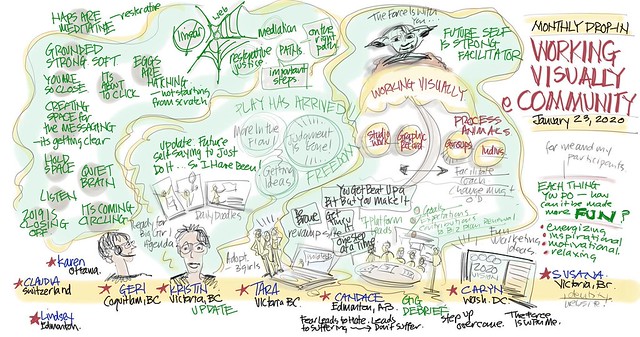 MAPS ARE
MEDITATIVE
restorative
GROUNDED
STRONG SOFT
YOU ARE
SO CLOSE
IT'S
ABOUT
TO CLICK
EGGS
ARE
HATCHING
not starting
from scratch
CREATING
SPACE for
the MESSAGING
its getting clear
HOLD
SPACE
QUIET
BRAIN
LISTEN
2019 IS
CLOSING
OFF
ITS COMING
CIRCLING
web
mediation
restorative
justice.
PATHS
on the
right
path.
important
steps.
PLAY HAS ARRIVED
More in the
Getting
Ideas
Judgment
is Gone!
FREEDOM
Update: Future
self saying to Just
Do it... So I Have Been!
Daily Doodles
Ready for
Agenda
The Force is With
You...
FUTURE SELF
IS STRONG
FACILITATOR
WORKING VISUALLY
PROCESS
ANIMALS
Studio
Work
Graphic
Record
Groups
Indivs
Facilitate
Coach
OD
You Get Beat Up a
Bit But You Make It
one step
at a time
Adopt
3 girls
Fun
Marketing
Ideas
2020
MONTHLY DROP-IN
WORKING
VISUALLY
@ COMMUNITY
January 23, 2020
for me and my
participants
EACH THING
YOU DO — how
can it be made
more FUN?
• energizing
• inspirational
• motivational.
• relaxing
Karen
Ottawa.
CLAUDIA
Switzerland
Lindsay
Edmonton.
GERI
Coquitlam, BC
KRISTIN
Victoria, BC
UPDATE
TARA
Victoria BC.
CANDACE
Edmonton, AB
Fear Leads to Hate. Leads
to Suffering → Don't Suffer.
GIG
DEBRIEF
CARYN
Wash. DC.
step up
overcome.
The Force
is with me.
SUSANA
Victoria, BC
identity
website!